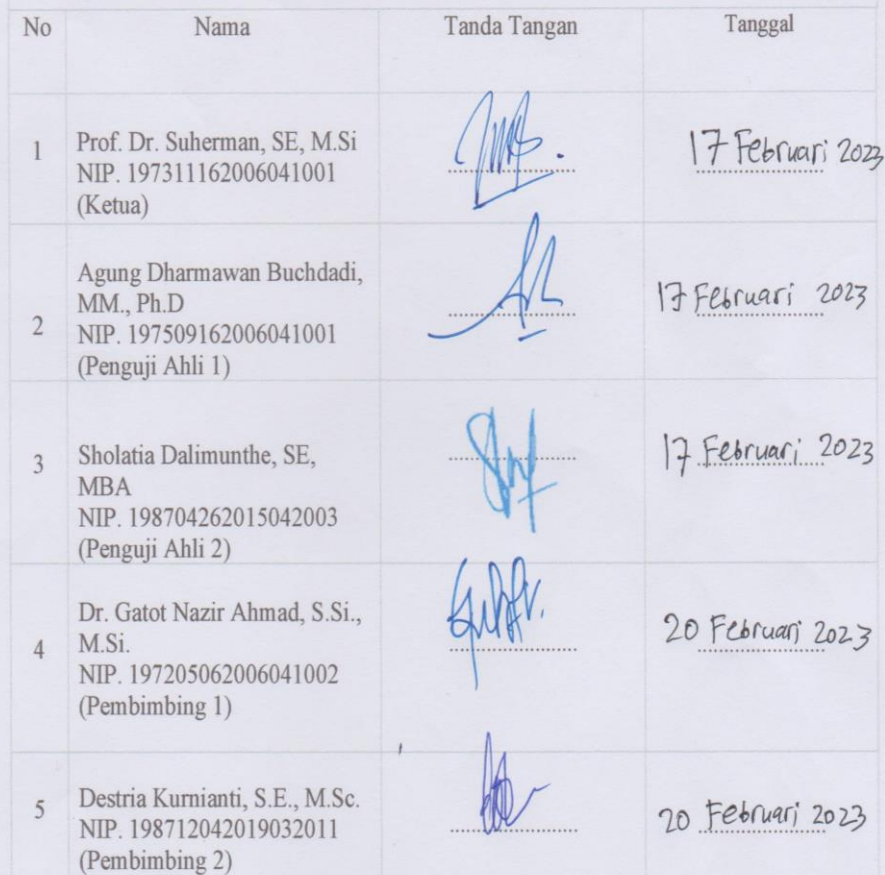 No Nama Tanda Tangan Tanggal
1 Prof. Dr. Suherman, SE, M.Si
NIP. 197311162006041001
(Ketua)
17 Februari 2023
Agung Dharmawan Buchdadi,
MM., Ph.D
2 NIP. 197509162006041001
(Penguji Ahli 1)
17 Februari 2023
3 Sholatia Dalimunthe, SE,
MBA
NIP. 198704262015042003
(Penguji Ahli 2)
17 Februari 2023
Dr. Gatot Nazir Ahmad, S.Si.,
4 M.Si.
NIP. 197205062006041002
(Pembimbing 1)
20 Februari 2023
5 Destria Kurnianti, S.E., M.Sc.
NIP. 198712042019032011
(Pembimbing 2)
20 Februari 2023